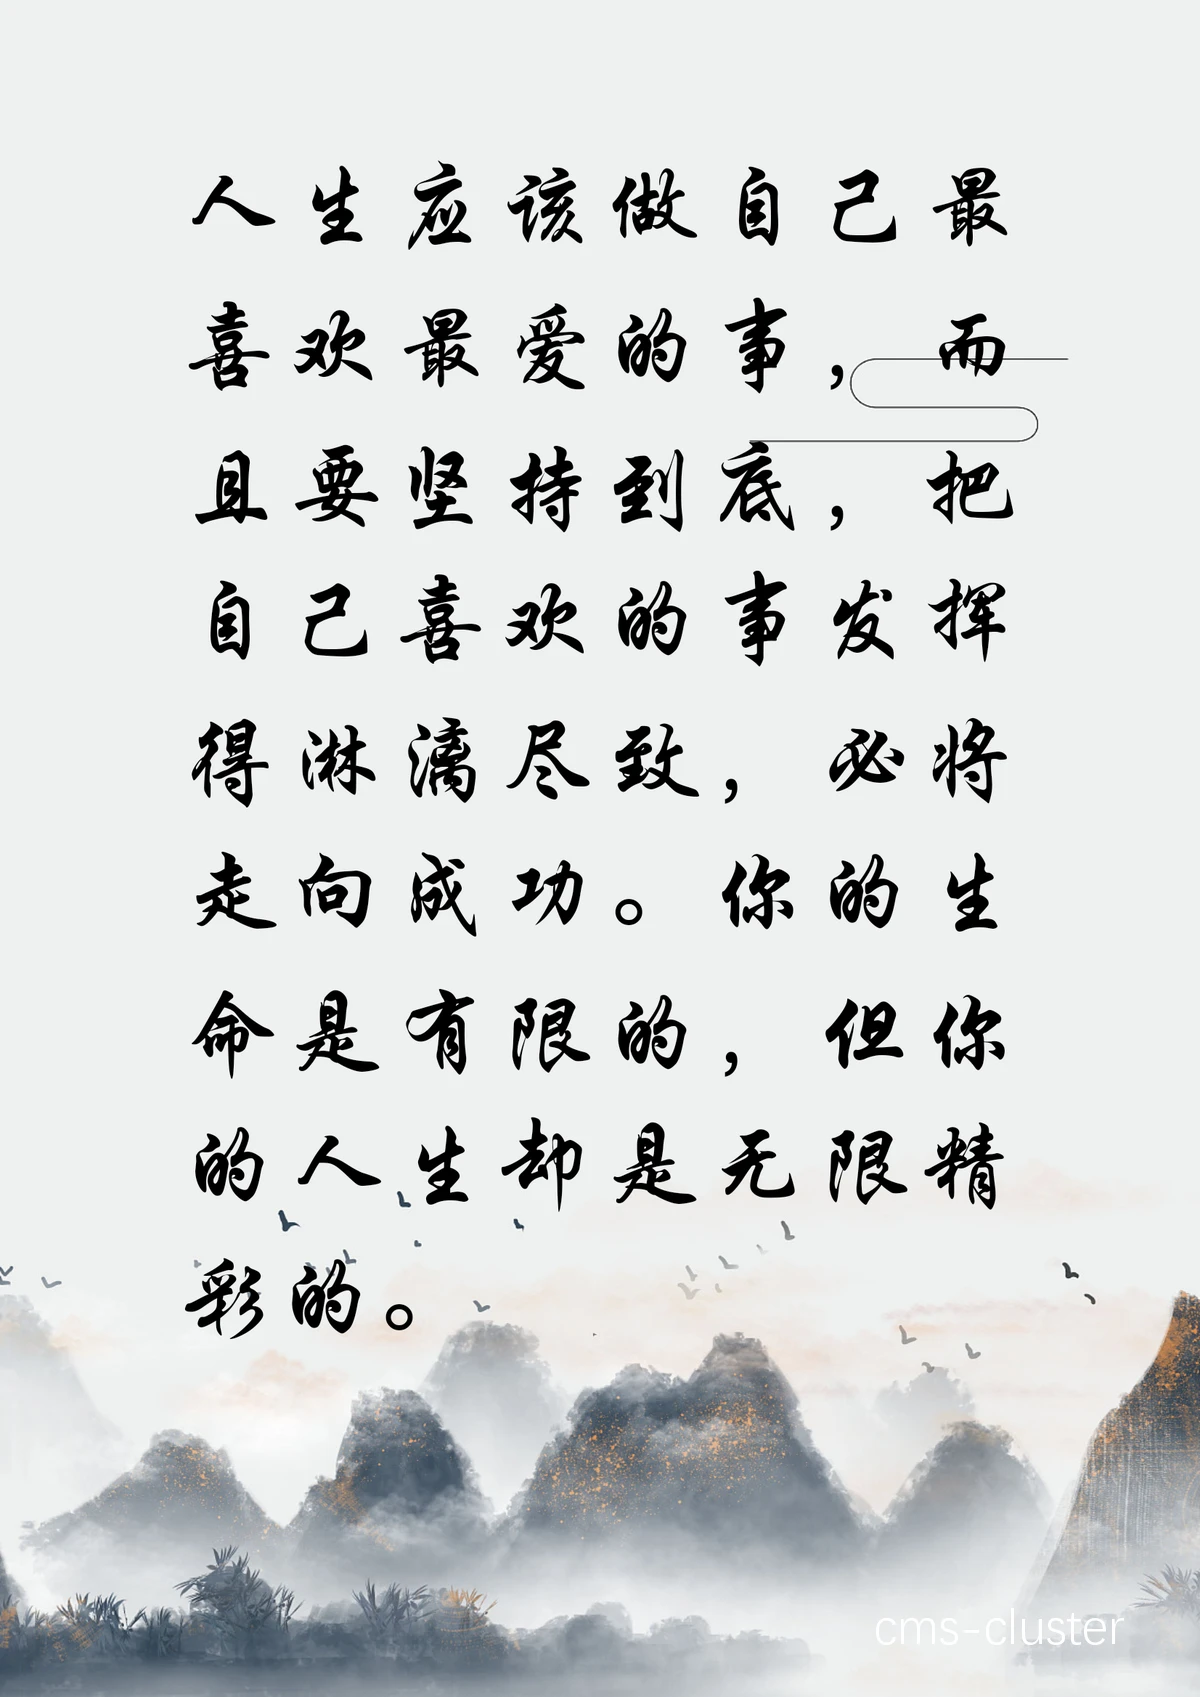 人生应该做自己最
喜欢最爱的事，而
且要坚持到底，把
自己喜欢的事发挥
得淋漓尽致，必将
走向成功。你的生
命是有限的，但你
的人生却是无限精
彩的。
cms-cluster